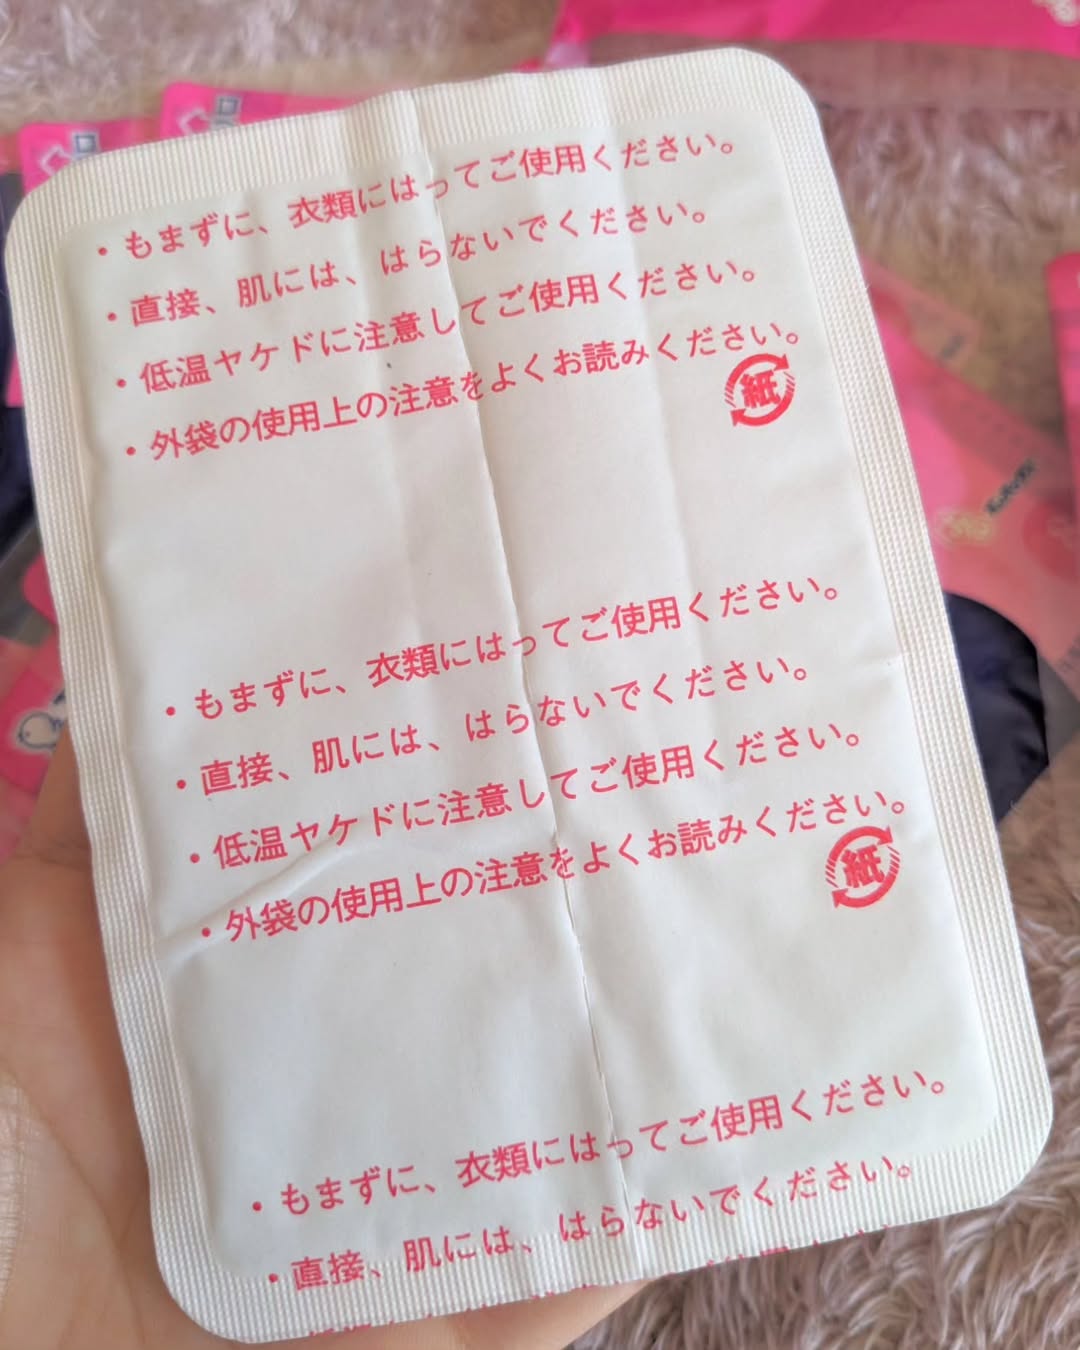 ・もまずに、衣類にはってご使用ください。
・直接、肌には、はらないでください。
・低温ヤケドに注意してご使用ください。
・外袋の使用上の注意をよくお読みください。
紙
・もまずに、衣類にはってご使用ください。
・直接、肌には、はらないでください。
・低温ヤケドに注意してご使用ください。
・外袋の使用上の注意をよくお読みください。
紙
・もまずに、衣類にはってご使用ください。
・直接、肌には、はらないでください。